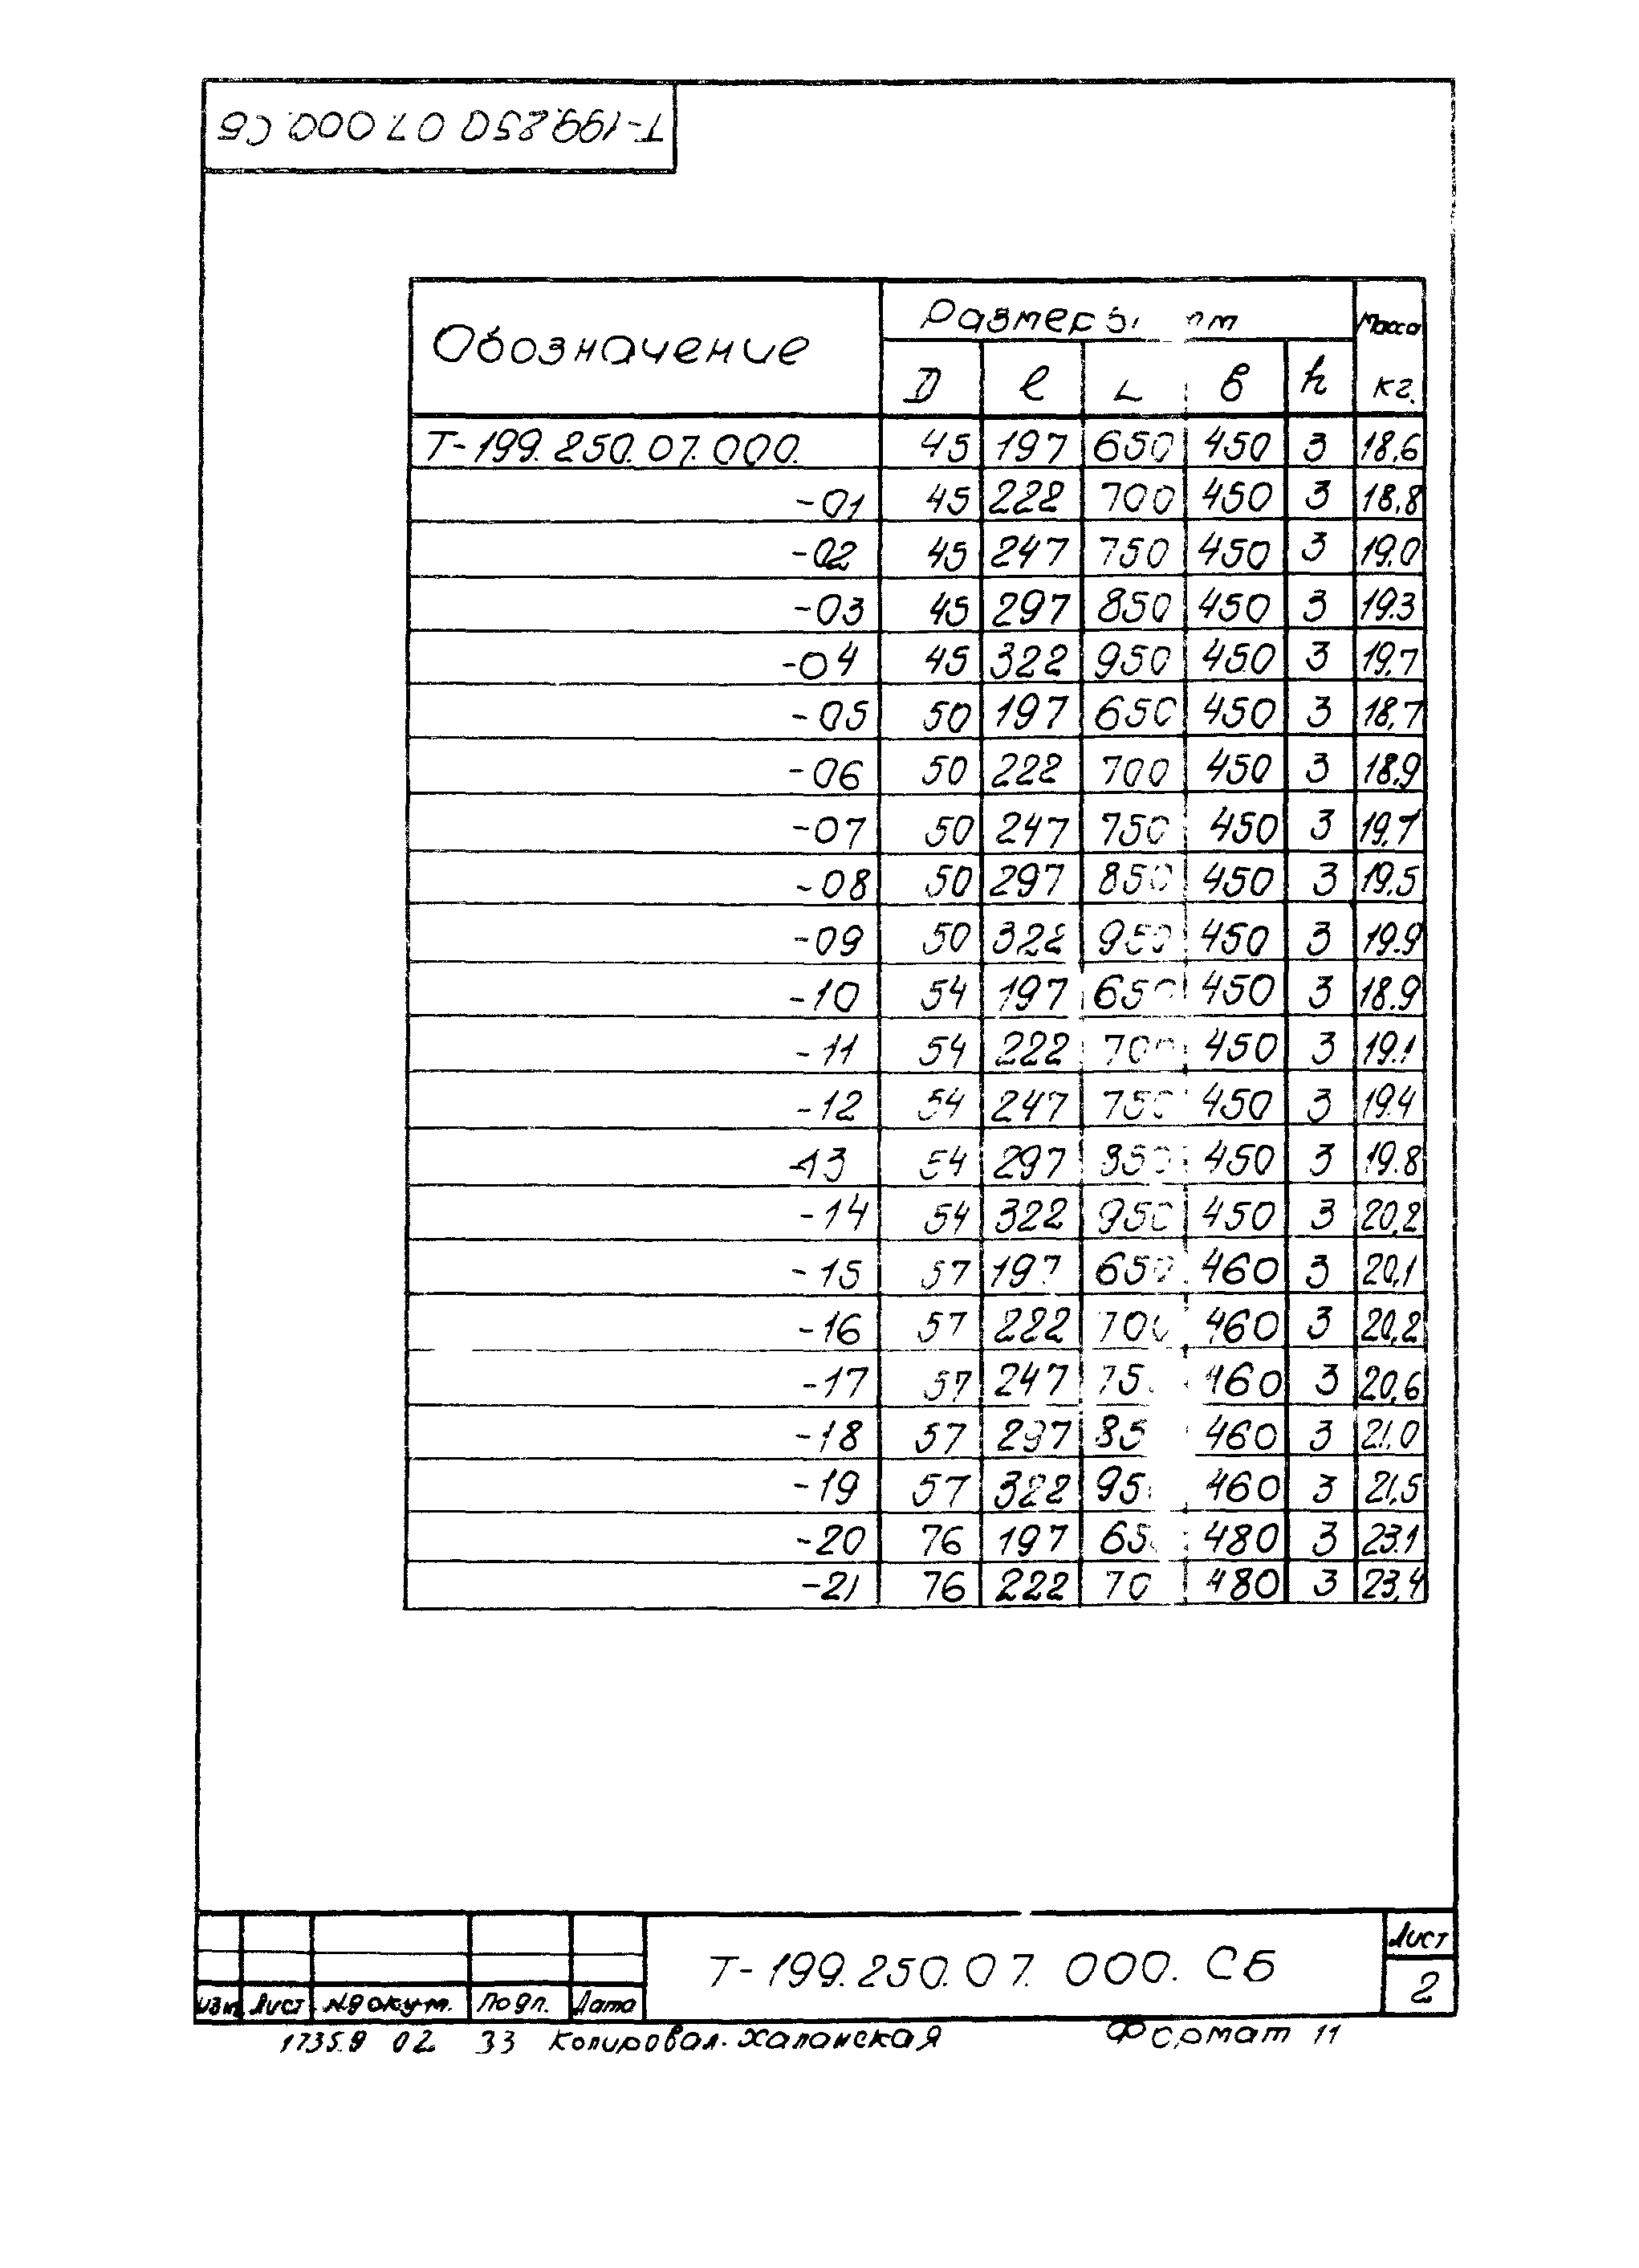 Т-199.250.07.000.СБ
Обозначение Размеры мм Масса кг.
D l L в h
Т-199.250.07.000. 45 197 650 450 3 18,6
-01 45 222 700 450 3 18,8
-02 45 247 750 450 3 19,0
-03 45 297 850 450 3 19.3
-04 45 322 950 450 3 19,7
-05 50 197 650 450 3 18,7
-06 50 222 700 450 3 18,9
-07 50 247 750 450 3
-08 50 297 850 450 3 19,5
-09 50 322 950 450 3 19.9
-10 54 197 650 450 3 18.9
-11 54 222 700 450 3 19.1
-12 54 247 750 450 3 19.4
-13 54 297 850 450 3 19.8
-14 54 322 950 450 3 20,2
-15 57 197 650 460 3 20,1
-16 57 222 700 460 3 20,2
-17 57 247 75 460 3 20,6
-18 57 297 85 460 3 21.0
-19 57 322 95 460 3 21,5
-20 76 197 65 480 3 23.1
-21 76 222 70 480 3 23,4
Т-199.250.07.000.СБ
Лист
2
Изм. Лист №докум. Подп. Дата
17359 02 33 Копировал. Халанская Формат 11